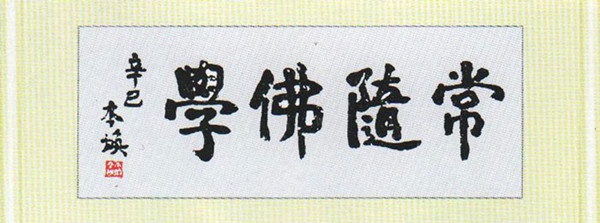 常隨佛學
辛巳
本焕